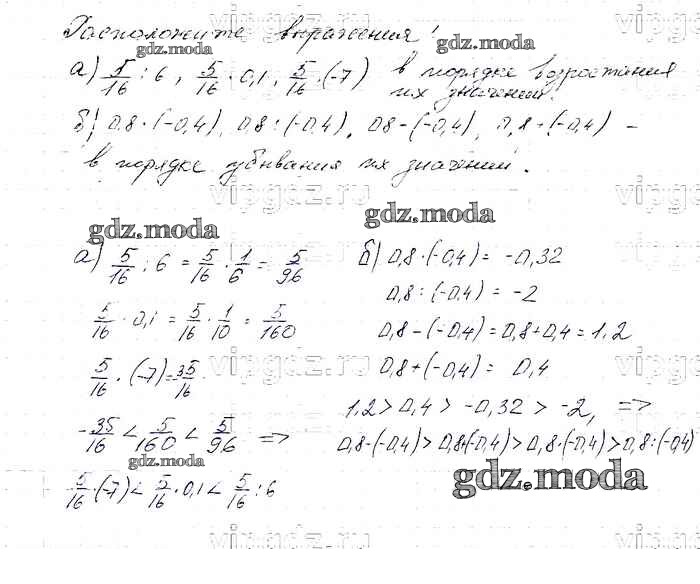 Расположите выражения!
а) 5/16 : 6, 5/16 · 0,1, 5/16 · (-7) в порядке возростания их значений.
б) 0,8 · (-0,4), 0,8 : (-0,4), 0,8 - (-0,4), 0,8 + (-0,4) -
в порядке убывания их значений.
а) 5/16 : 6 = 5/16 · 1/6 = 5/96
5/16 · 0,1 = 5/16 · 1/10 = 5/160
5/16 · (-7) = 35/16
-35/16 < 5/160 < 5/96 =>
5/16 · (-7) < 5/16 · 0,1 < 5/16 : 6
б) 0,8 · (-0,4) = -0,32
0,8 : (-0,4) = -2
0,8 - (-0,4) = 0,8 + 0,4 = 1,2
0,8 + (-0,4) = 0,4
1,2 > 0,4 > -0,32 > -2, =>
0,8 - (-0,4) > 0,8 + (-0,4) > 0,8 · (-0,4) > 0,8 : (-0,4)
gdz.moda
gdz.moda
gdz.moda
gdz.moda
gdz.moda
gdz.moda
vipgdz.ru
vipgdz.ru
vipgdz.ru
vipgdz.ru
vipgdz.ru